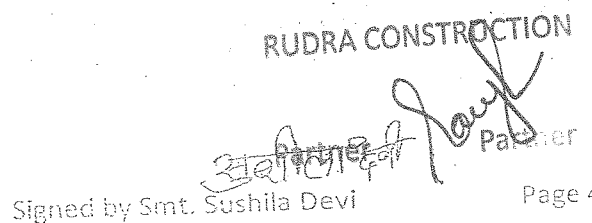 RUDRA CONSTRUCTION
Partner Partner
सुशीला देवी
Signed by Smt. Sushila Devi Page 4